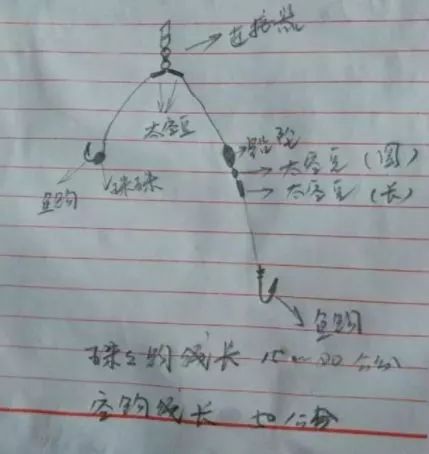 连接器
太空豆
铅砣
太空豆（圆）
太空豆（长）
鱼钩
鱼钩
钩线长 15~20公分
空钩线长 50公分